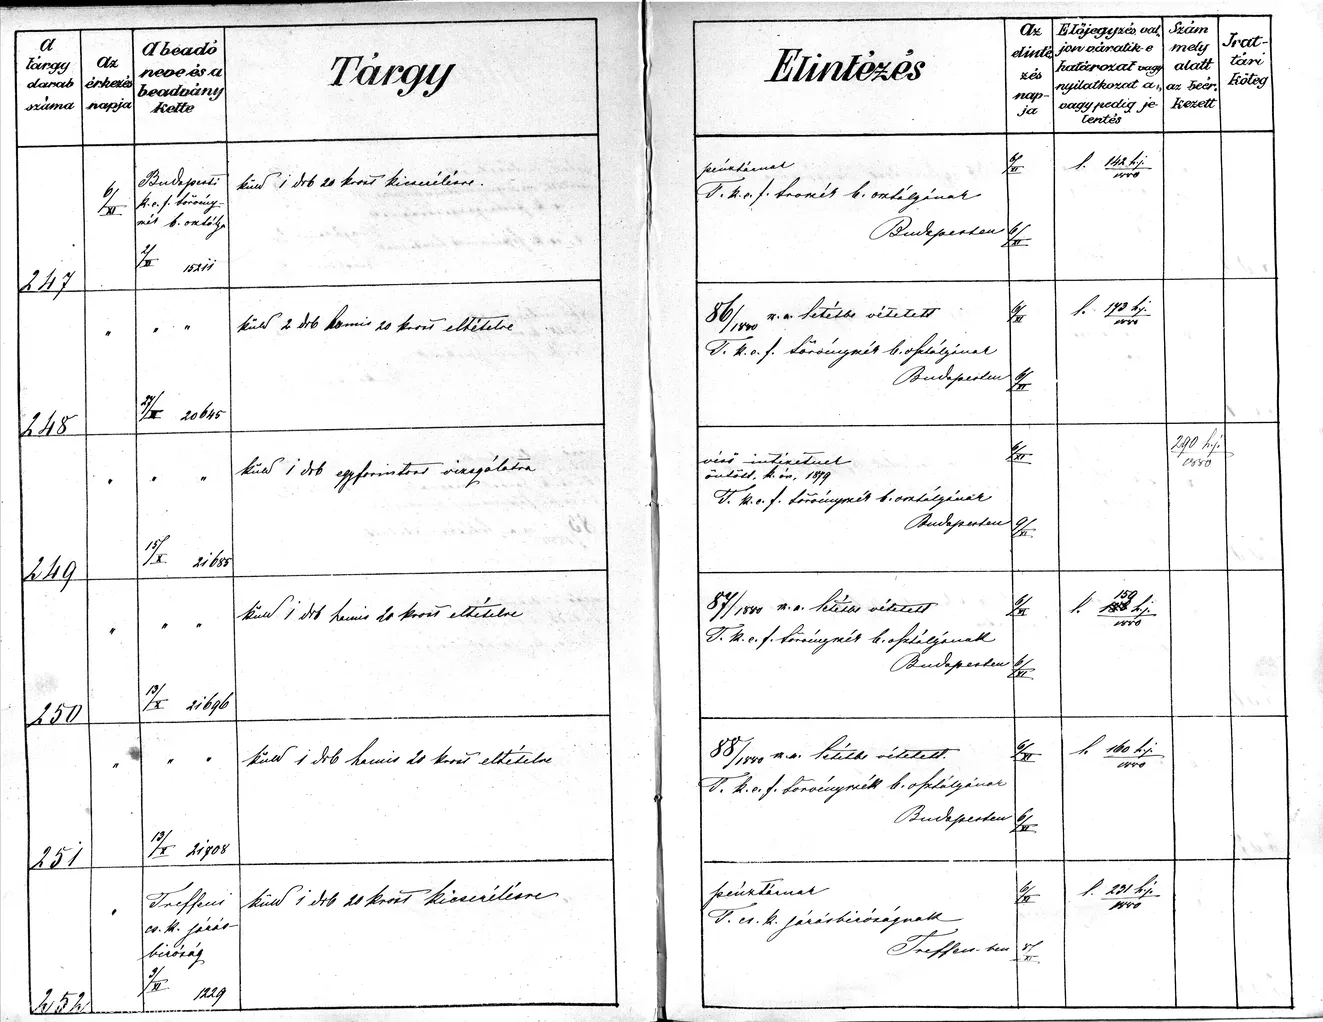 A tárgy darab száma
Az érkezés napja
A beadó neve és a beadvány kelte
Tárgy
Elintézés
Az elintézés napja
Előjegyzés, valjon váratik-e határozat vagy nyilatkozat a, vagy pedig jelentés
Szám mely alatt az beérkezett
Irattári köteg
247
6/XI
Budapesti
k. e. f. törvény-
szék b. osztálya
2/XI 15211
küld 1 drb 20 krost kicserélésre.
pénztárnak
T. k. e. f. törvszék b. osztályának
Budapesten 6/XI
6/XI
l. 142 h.j./1880
248
" " "
27/XI 20645
küld 2 drb hamis 20 krost eltételre
86/1880 n.a. letétbe vétetett
T. k. e. f. törvényszék b. osztályának
Budapesten 6/XI
6/XI
l. 143 h.j./1880
249
" " "
15/X 21685
küld 1 drb egyforintost vizsgálatra
verő intézetnek
öntött, 1879
T. k. e. f. törvényszék b. osztályának
Budapesten 9/XI
6/XI
290 h.j./1880
250
" " "
13/X 21696
küld 1 drb hamis 20 krost eltételre
87/1880 n.a. letétbe vétetett
T. k. e. f. törvényszék b. osztályának
Budapesten 6/XI
6/XI
l. 159 h.j./1880
251
" " "
13/X 21708
küld 1 drb hamis 20 krost eltételre
88/1880 n.a. letétbe vétetett.
T. k. e. f. törvényszék b. osztályának
Budapesten 6/XI
6/XI
l. 160 h.j./1880
252
"
Treffeni
cs. k. járás-
biróság
3/XI 1229
küld 1 drb 20 krost kicserélésre
pénztárnak
T. cs. k. járásbiróságnak
Treffen-ben 8/XI
6/XI
l. 231 h.j./1880